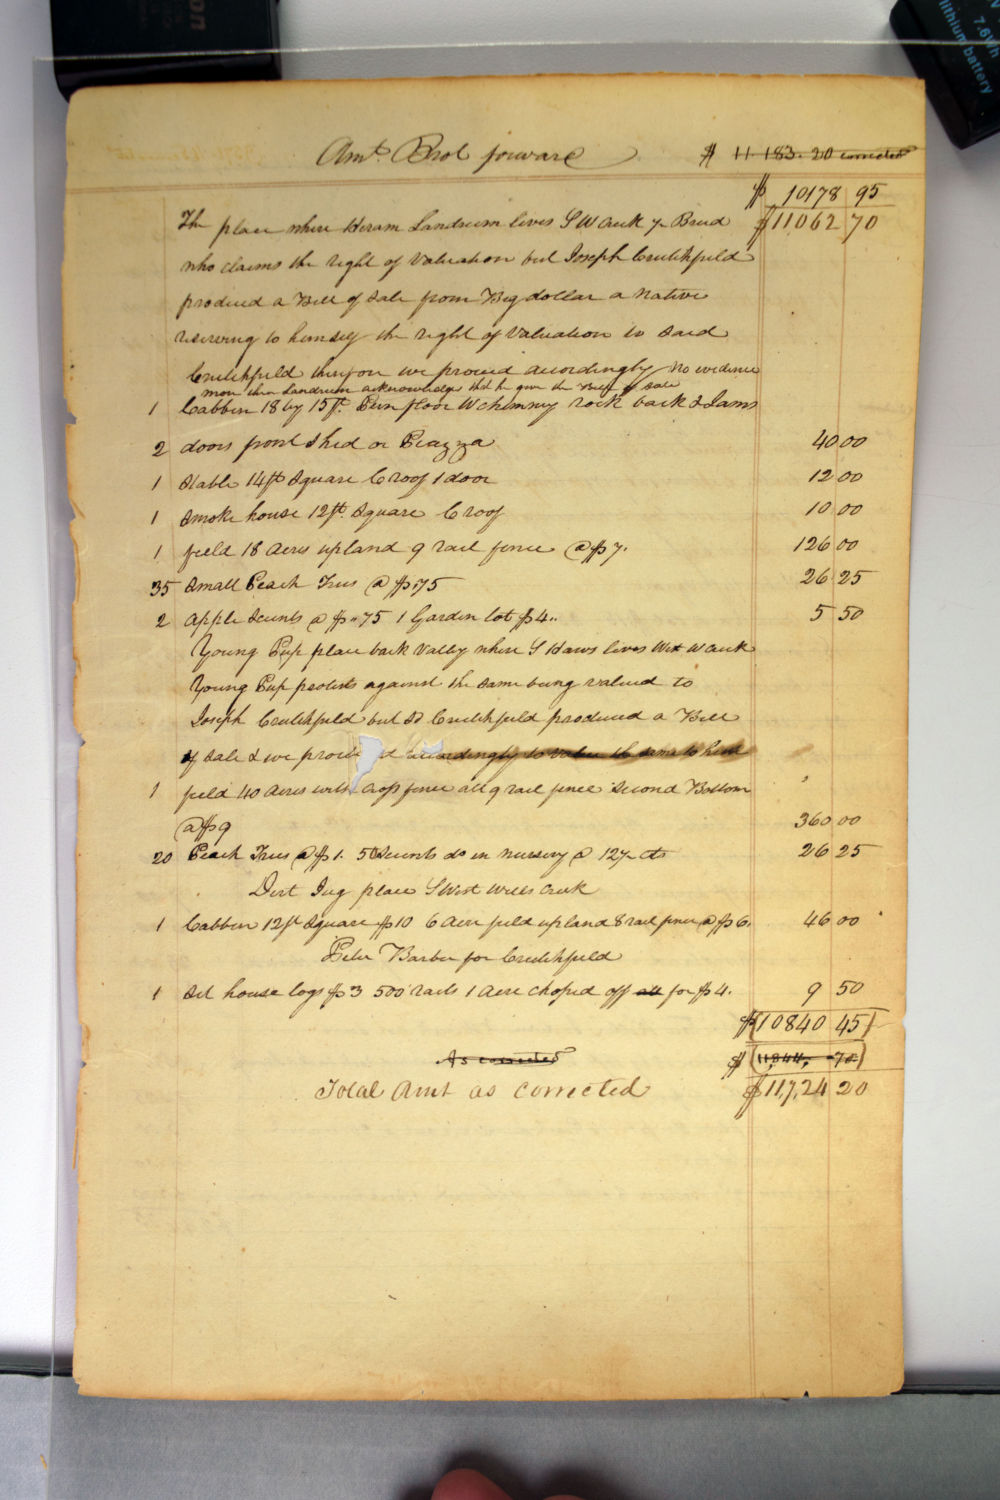 Amt. Brot forward $ 11 183. 20 corrected
$ 10178 95
The place where Hiram Landrum lives S W Creek $ 11062 70
who claims the right of valuation but Joseph Crutchfield
produced a Bill of Sale from Big dollar a native
reserving to himself the right of valuation to said
Crutchfield thereupon we proceed accordingly No evidence
more than Landrum acknowledge that he gave the Bill of Sale
1 Cabbin 18 by 15 ft. Pun floor W chimney rock back & Jams
2 doors front Shed or Piazza 40 00
1 Stable 14 ft Square C roof 1 door 12 00
1 Smoke house 12 ft. Square C roof 10 00
1 field 18 Acres upland 9 rail fence @ $7. 126 00
35 Small Peach Trees @ $.75 26 25
2 apple Scunts @ $ .. 75 1 Garden lot $4.. 5 50
Young Pup place back Valley where S Haws lives West W Creek
Young Pup protests against the same being valued to
Joseph Crutchfield but Sd Crutchfield produced a Bill
of Sale & we proceed accordingly to value the same to him
1 field 40 Acres with crop fence all 9 rail fence Second Bottom
@ $9 360 00
20 Peach Trees @ $1. 50 Scunts do in nursery @ 12½ cts 26 25
Dirt Jug place S West Wills Creek
1 Cabbin 12 ft Square $10 6 Acre field upland 8 rail fence @ $6. 46 00
Peter Barber for Crutchfield
1 Set house logs $3 500 rails 1 Acre choped off all for $4. 9 50
$ (10840 45)
As corrected $ (11,844. 70)
Total Amt as corrected $ 11,7,24 20
lithium battery
7.6Wh
on